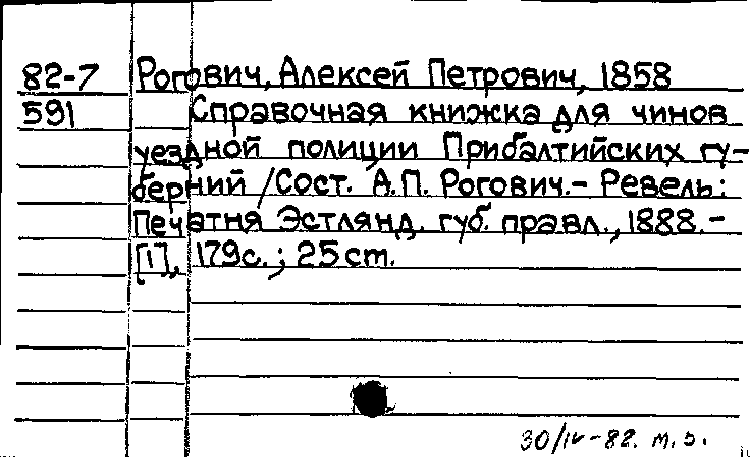 82-7 Рогович, Алексей Петрович, 1858
591 Справочная книжка для чинов
уездной полиции Прибалтийских гу-
берний /Сост. А.П. Рогович.- Ревель:
Печатня Эстлянд. губ. правл., 1888.-
[1], 179с.; 25 cm.
30/IV-82. м.з.